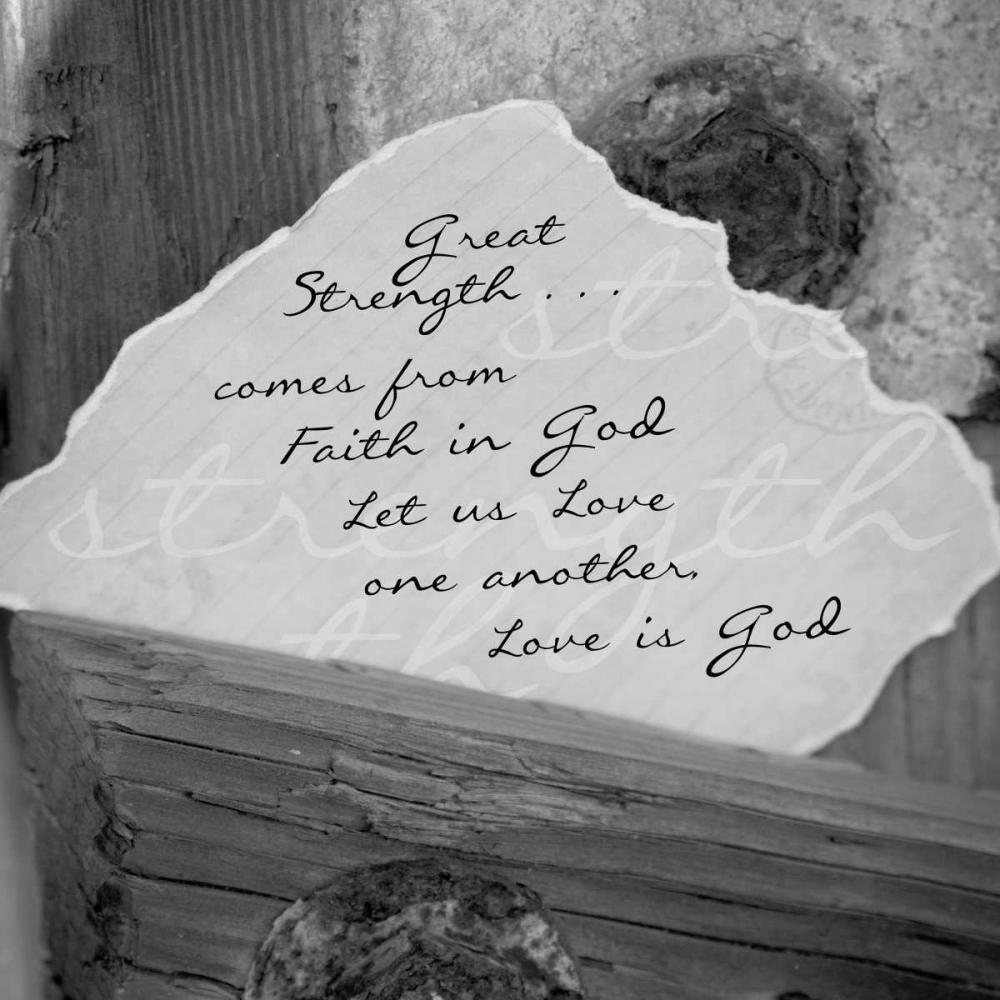 Great
Strength . . .
comes from
Faith in God
Let us Love
one another,
Love is God
stre
strength
th